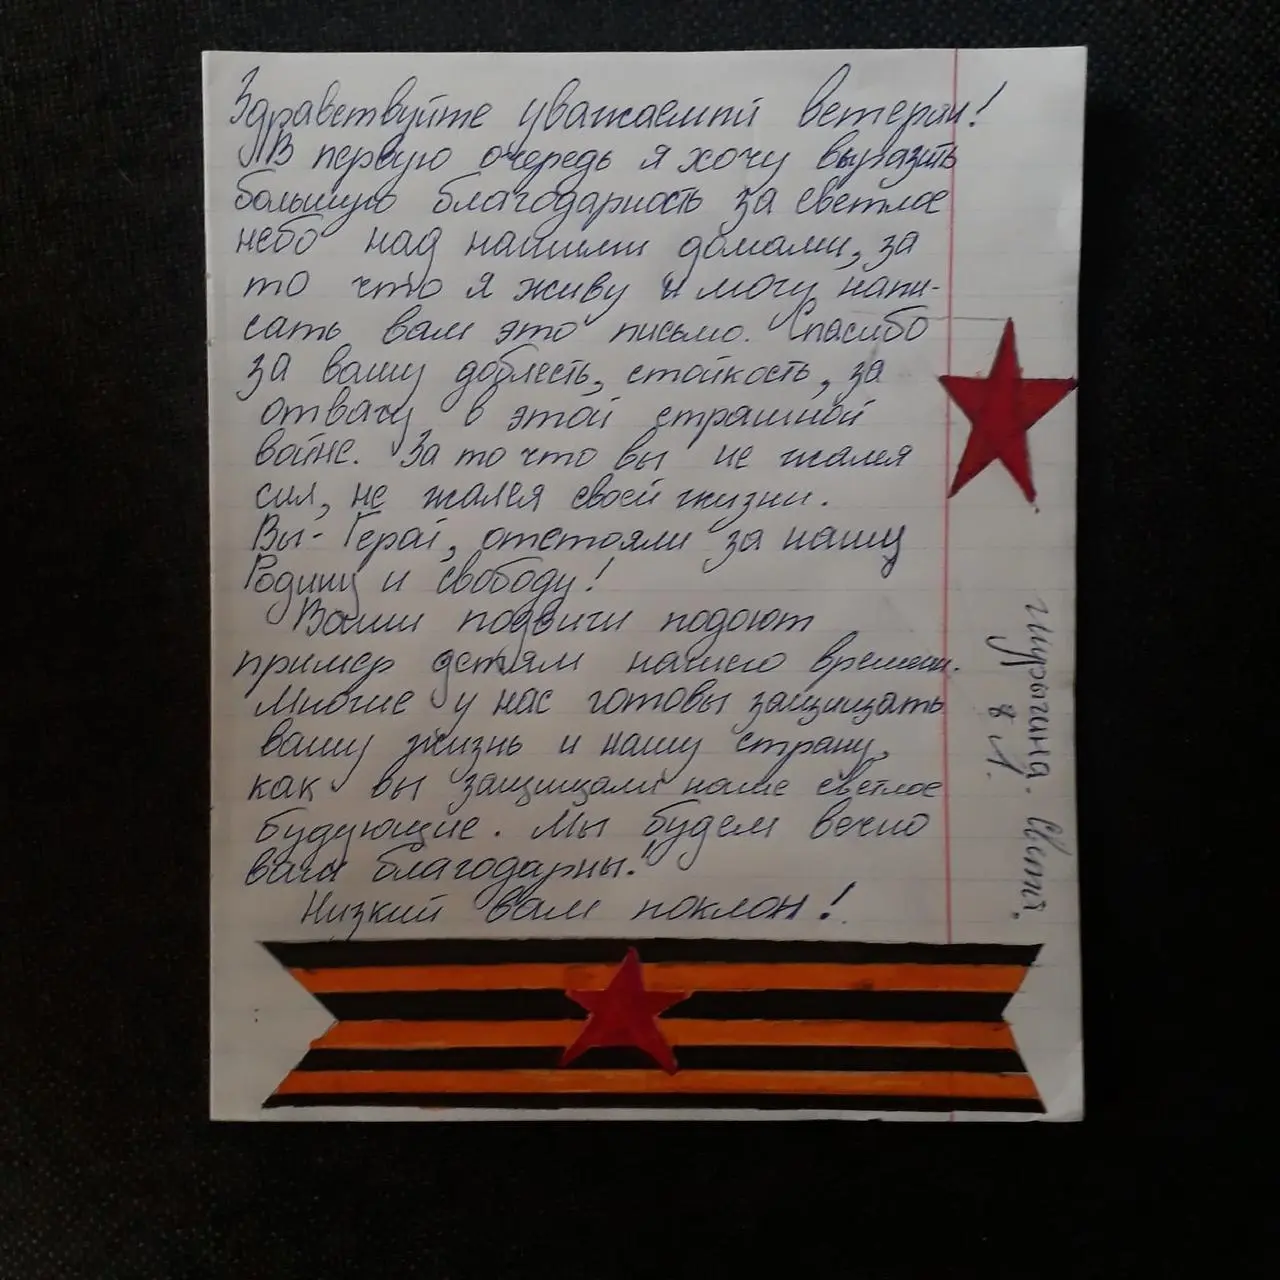 Здравствуйте уважаемый ветеран!
В первую очередь я хочу выразить
большую благодарность за светлое
небо над нашими домами, за
то что я живу и могу напи-
сать вам это письмо. Спасибо
за вашу доблесть, стойкость, за
отвагу в этой страшной
войне. За то что вы не жалея
сил, не жалея своей жизни.
Вы - Герои, отстояли за нашу
Родину и свободу!
Ваши подвиги подают
пример детям нашего времени.
Многие у нас готовы защищать
вашу жизнь и нашу страну,
как вы защищали наше светлое
будующие. Мы будем вечно
вам благодарны!
Низкий вам поклон!